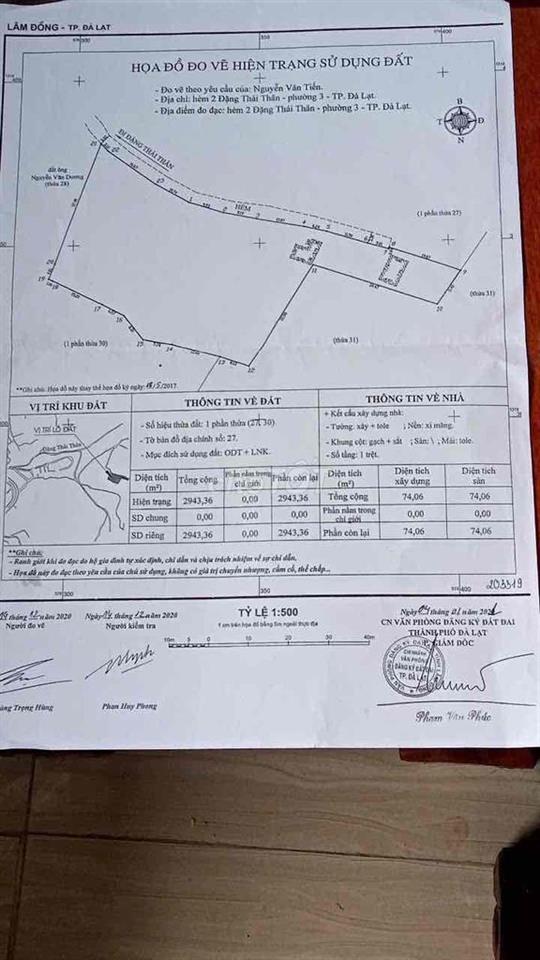 LÂM ĐỒNG - TP. ĐÀ LẠT
HỌA ĐỒ ĐO VẼ HIỆN TRẠNG SỬ DỤNG ĐẤT
- Đo vẽ theo yêu cầu của: Nguyễn Văn Tiến.
- Địa chỉ: hẻm 2 Đặng Thái Thân - phường 3 - TP. Đà Lạt.
- Địa điểm đo đạc: hẻm 2 Đặng Thái Thân - phường 3 - TP. Đà Lạt.
B
T
Đ
N
ĐI ĐẶNG THÁI THÂN
HẺM
đất ông
Nguyễn Văn Dương
(thửa 28)
(1 phần thửa 27)
(thửa 31)
(thửa 31)
(1 phần thửa 30)
**Ghi chú: Họa đồ này thay thế họa đồ ký ngày /5/2017.
VỊ TRÍ KHU ĐẤT
VỊ TRÍ LÔ ĐẤT
Đặng Thái Thân
THÔNG TIN VỀ ĐẤT
- Số hiệu thửa đất: 1 phần thửa
- Tờ bản đồ địa chính số: 27.
- Mục đích sử dụng đất: ODT + LNK.
THÔNG TIN VỀ NHÀ
+ Kết cấu xây dựng nhà:
- Tường: xây + tole ; Nền: xi măng.
- Khung cột: gạch + sắt ; Sàn: \ ; Mái: tole.
- Số tầng: 1 trệt.
Diện tích (m²) Tổng cộng Phần nằm trong chỉ giới Phần còn lại Diện tích (m²) Diện tích xây dựng Diện tích sàn
Hiện trạng 2943,36 0,00 2943,36 Tổng cộng 74,06 74,06
SD chung 0,00 0,00 0,00 Phần nằm trong chỉ giới 0,00 0,00
SD riêng 2943,36 0,00 2943,36 Phần còn lại 74,06 74,06
**Ghi chú:
- Ranh giới khi đo đạc do hộ gia đình tự xác định, chỉ dẫn và chịu trách nhiệm về sự chỉ dẫn.
- Họa đồ này đo đạc theo yêu cầu của chủ sử dụng, không có giá trị chuyển nhượng, cầm cố, thế chấp...
203319
tháng 12 năm 2020
Người đo vẽ
Trọng Hùng
Ngày tháng 12 năm 2020
Người kiểm tra
Phan Huy Phong
TỶ LỆ 1:500
1 cm trên họa đồ bằng 5m ngoài thực địa
10m 5 0 10 20 30 40m
Ngày tháng 01 năm
CN VĂN PHÒNG ĐĂNG KÝ ĐẤT ĐAI
THÀNH PHỐ ĐÀ LẠT
GIÁM ĐỐC
CHI NHÁNH
VĂN PHÒNG
ĐĂNG KÝ ĐẤT ĐAI
TP. ĐÀ LẠT
Phạm Văn Phúc